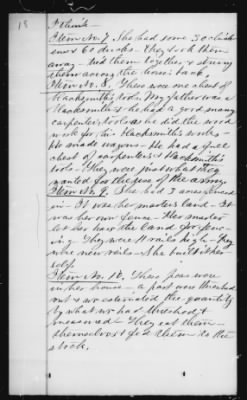 18
I think—
Item No. 7. She had some 30 chick-
ens & 60 ducks. They took them
away – tied them together & slung
them across the horses back.
Item No. 8. There was one chest of
blacksmith's tools. My father was a
blacksmith & he had a good many
carpenter tools as he did the wood
work for his blacksmith works–
He made wagons – He had a full
chest of carpenters & blacksmith
tools – They were just what they
wanted for the use of the army
Item No. 9. She had 3 acres fenced
in – It was her masters land – It
was her own fence – Her master
let her have the land for fenc-
ing – They were 11 rails high – They
were new rails – She built it her
self.
Item No. 10. These peas were
in her house – a part were thrashed
out & we estimated the quantity
by what we had thrashed &
measured – They eat them
themselves & fed them to the
stock.